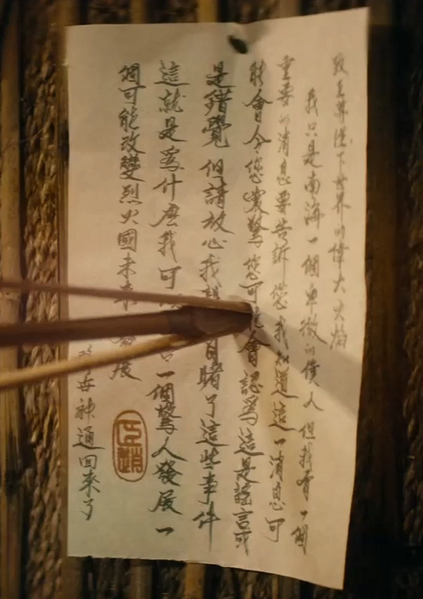 致至尊陛下世界的偉大火焰
我只是南海一個卑微的僕人但我有一個
重要的消息要告訴您我知道這一消息可
能會令您驚您可會認爲這是謊言或
是錯覺但請放心我目睹了這些事件
這就是爲什麽我可一個驚人發展一
個可能改變烈火國未來發展
神通回來了